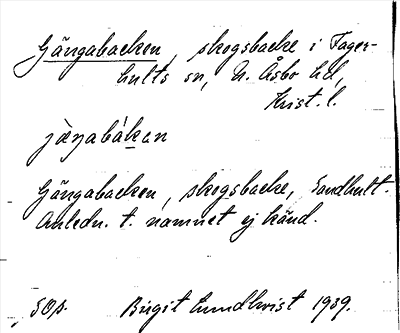 Gångabacken, skogsbacke i Fager-
hults sn, N. Åsbo hd,
Krist. l.
Gångabacken, skogsbacke, Sandhult.
Anledn. t. namnet ej känd.
Birgit Lundkvist 1939.